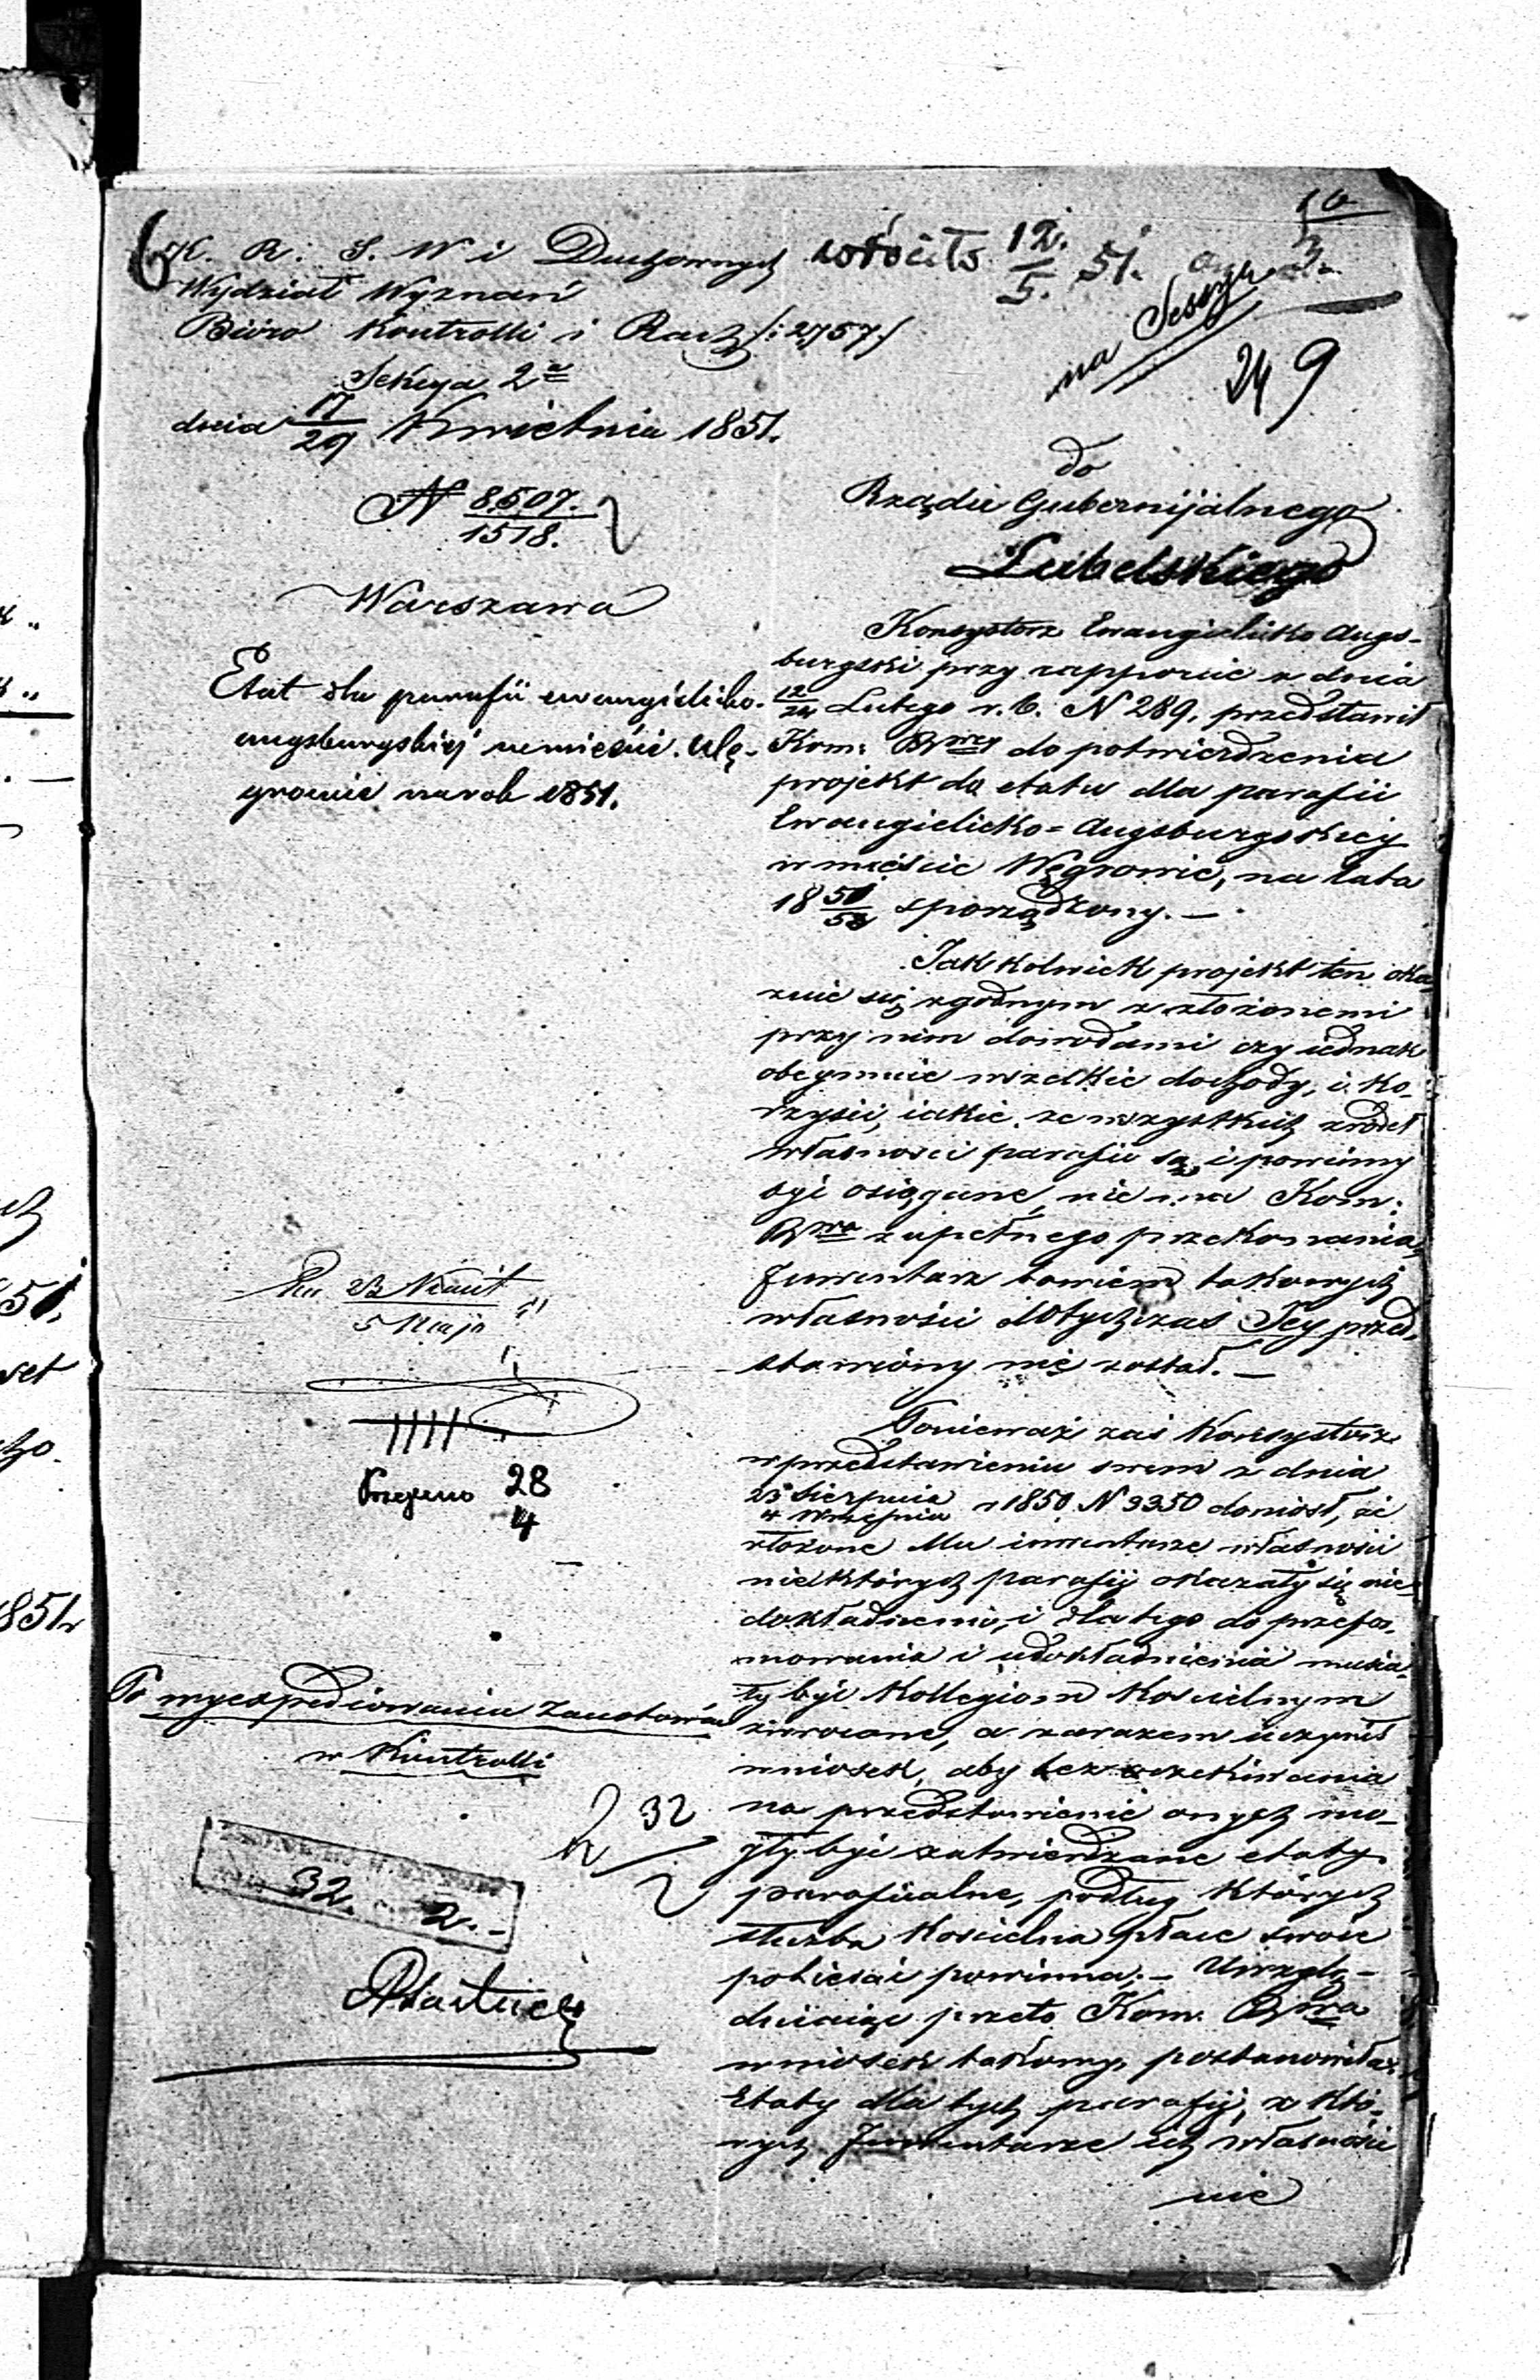 10
6
K. R. S. W i Duchownych
Wydział Wyznań
Biuro Kontrolli i Rach /: 2757 /
Sekcya 2a
dnia 17/29 Kwietnia 1851.
N 8507./1518.
Warszawa
wróciło 12./5. 51.
na Sessyę
249
Etat dla parafii ewangielicko-
augsburgskiej w mieście Wę-
growie na rok 1851.
do
Rządu Gubernijalnego
Lubelskiego
Konsystorz Ewangielicko Augs-
burgski przy rapporcie z dnia
12/24 Lutego r. b. N 289, przedstawił
Kom: Rwey do potwierdzenia
projekt do etatu dla parafii
Ewangielicko-Augsburgskiej
w mieście Węgrowie, na lata
18 51/53 sporządzony. —
Jakkolwiek projekt ten oka-
zuie się zgodnym z złożonemi
przy nim dowodami czy iednak
obeymuie wszelkie dochody, i ko-
rzyści, iakie ze wszystkich źródeł
własności parafii są i powinny
być osiągane, nie ma Kom:
Rwa zupełnego przekonania,
Inwentarz bowiem takowych
własności dotychczas Jey przed-
stawiony nie został. —
Ponieważ zaś Konsystorz
w przedstawieniu swem z dnia
23 Sierpnia/4 Września r 1850 N 3350 doniósł, że
złożone Mu inwentarze własności
niektórych parafij okazały się nie-
dokładnemi, i dla tego do przefor-
mowania i udokładnienia musia-
ły być Kollegiom Kościelnym
zwrócone, a zarazem uczynił
wniosek, aby bez oczekiwania
na przedstawienie onych mo-
gły być zatwierdzane etaty
parafialne, podług których
służba Kościelna płace swoie
pobierać powinna; — Uwzglę-
dniaiąc przeto Kom. Rwa
wniosek takowy, postanowiła:
Etaty dla tych parafij, z któ-
rych Inwentarze ich własności
nie
23 Kwiet/5 Maja
28
4
Po wyexpediowaniu zanotować
w Kontrolli
32
32. 2. -